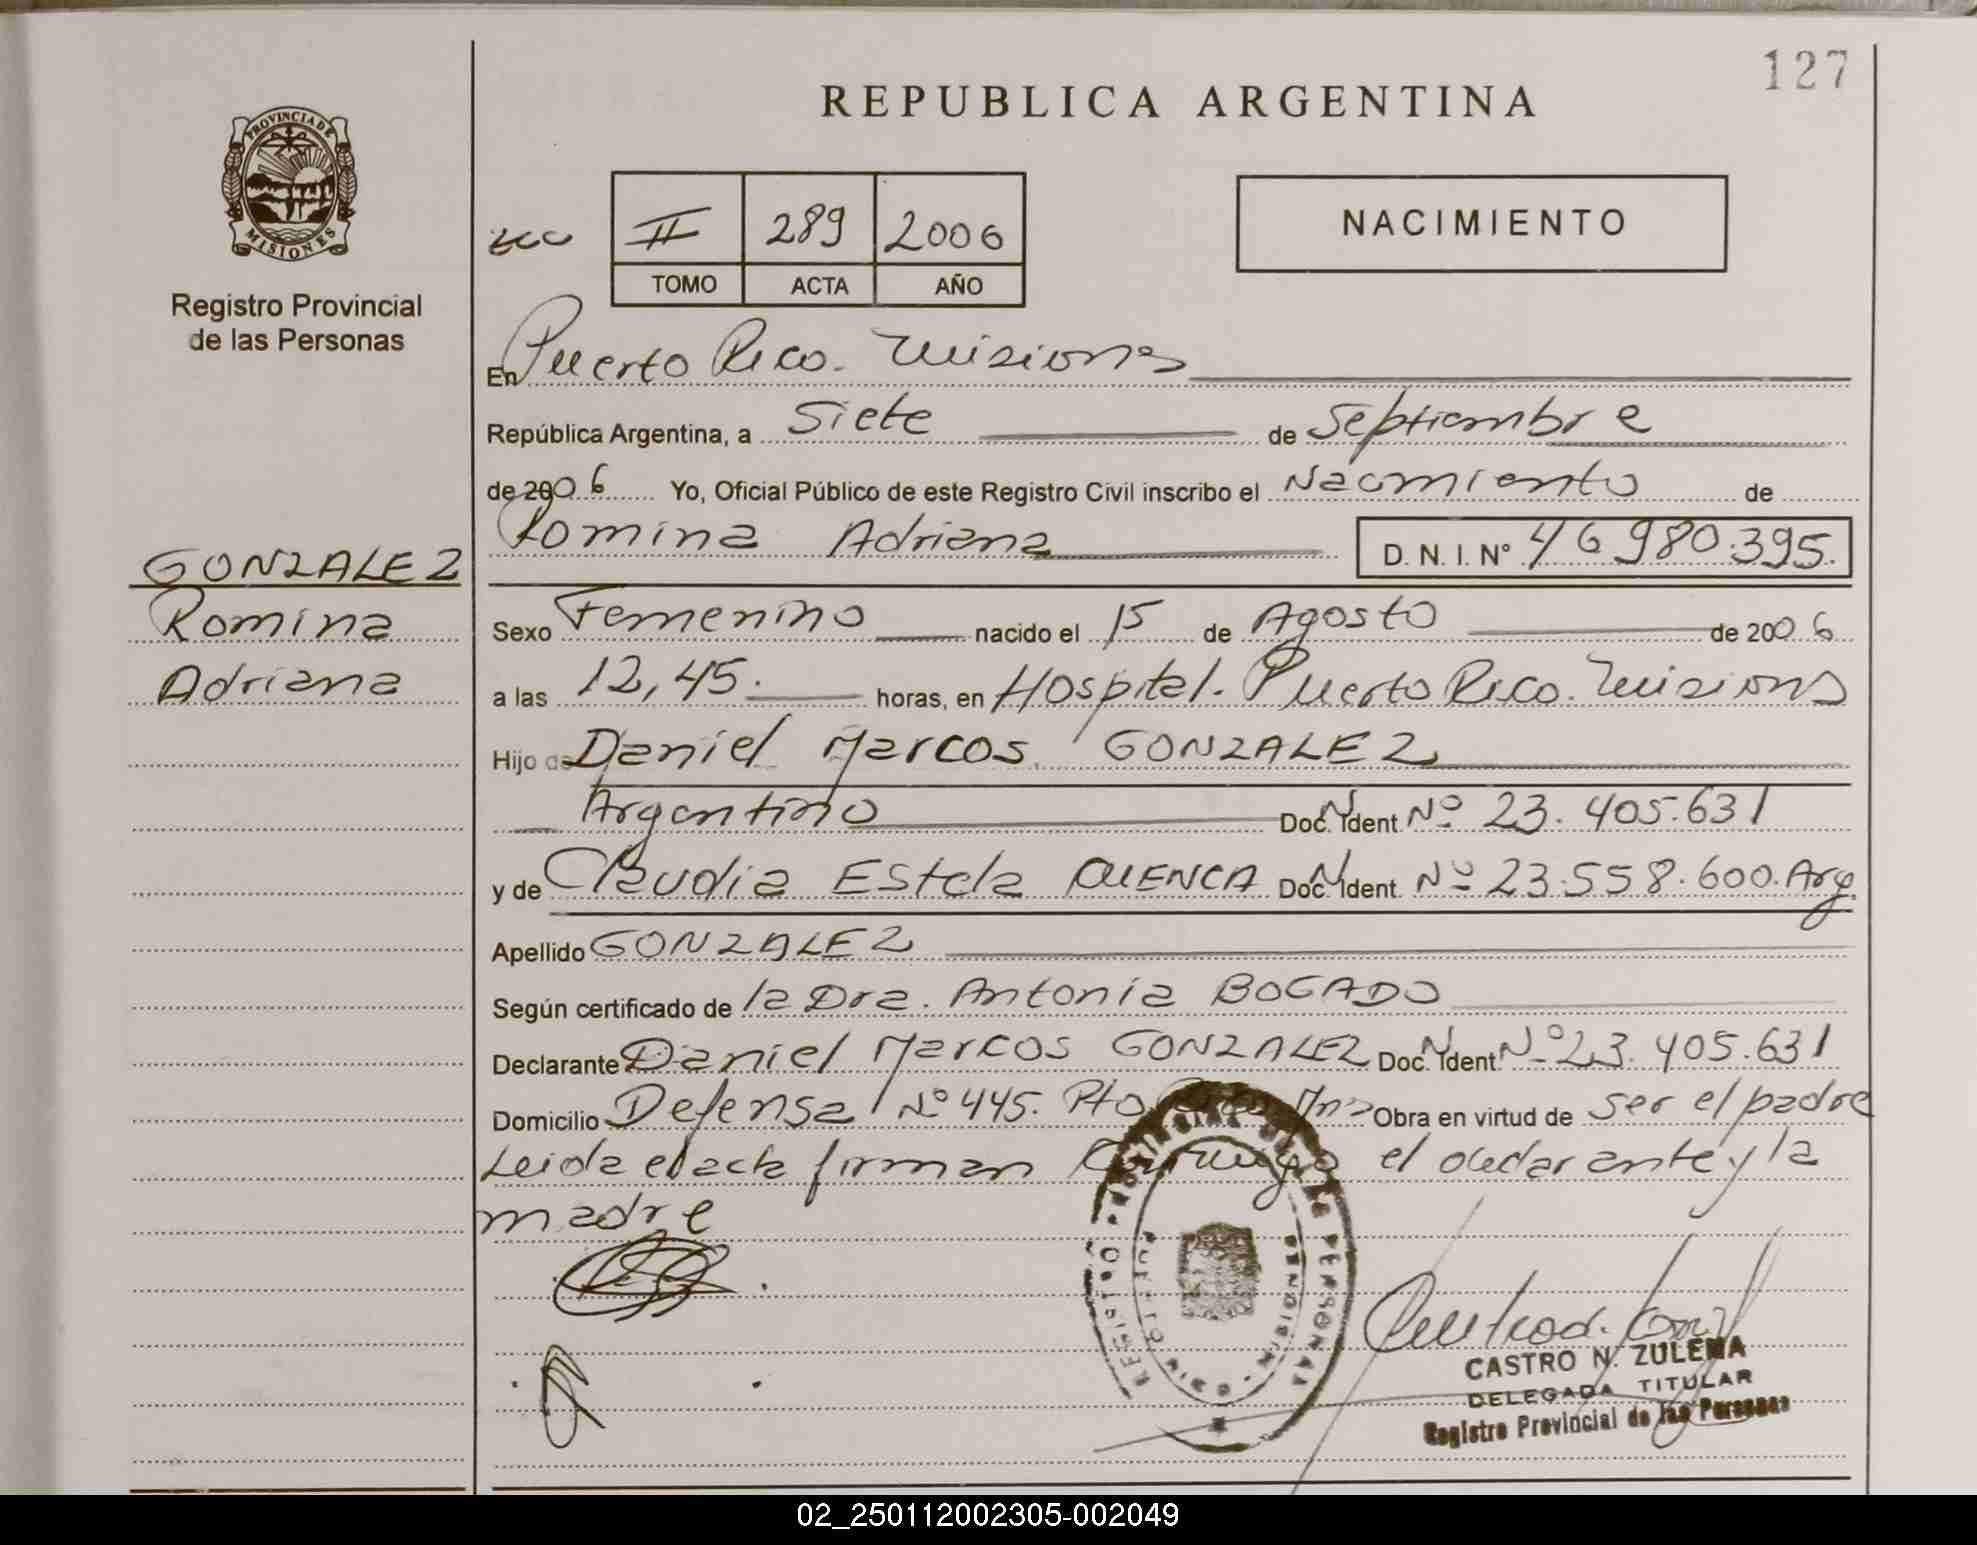 127
REPUBLICA ARGENTINA
PROVINCIA DE
MISIONES
Registro Provincial
de las Personas
II 289 2006
TOMO ACTA AÑO
NACIMIENTO
En Puerto Rico. Misiones
República Argentina, a Siete de Septiembre
de 2006 Yo, Oficial Público de este Registro Civil inscribo el Nacimiento de
Romina Adriana D. N. I. Nº 46 980.395.
GONZALEZ
Romina
Adriana
Sexo Femenino nacido el 15 de Agosto de 2006
a las 12,45. horas, en Hospital. Puerto Rico. Misiones
Hijo de Daniel Marcos GONZALEZ
Argentino Doc. N Ident Nº 23.405.631
y de Claudia Estela CUENCA Doc. N Ident. Nº 23.558.600. Arg.
Apellido GONZALEZ
Según certificado de la Dra. Antonia BOGADO
Declarante Daniel Marcos GONZALEZ Doc. N Ident. Nº 23.405.631
Domicilio Defensa Nº 445. Pto Rico Mnes Obra en virtud de ser el padre
Leida el acta firman conmigo el declarante y la
madre
REGISTRO PROVINCIAL DE LAS PERSONAS
PUERTO RICO MISIONES
CASTRO N. ZULEMA
DELEGADA TITULAR
Registro Provincial de las Personas
02_250112002305-002049